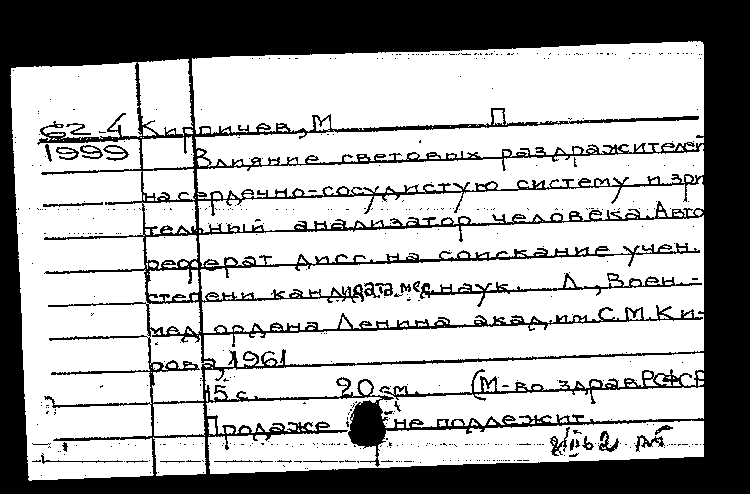 62-4 Кирпичев, М П
1999 Влияние световых раздражителей
на сердечно-сосудистую систему и зри
тельный анализатор человека. Авто
реферат дисс. на соискание учен.
степени кандидата мед. наук. Л., Воен.-
мед. ордена Ленина акад. им. С.М. Ки-
рова, 1961
15 с. 20 см. (М-во здрав. РСФСР
Продаже не подлежит.